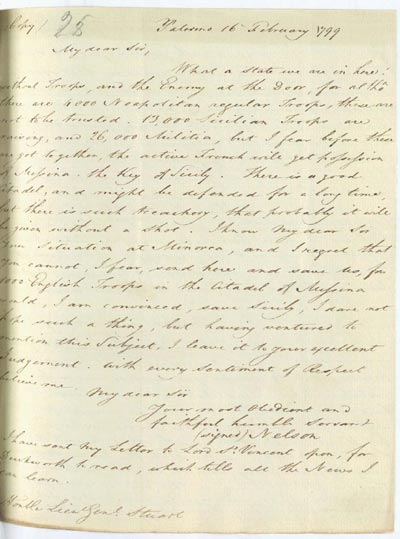 (Copy) 25 Palermo 16 February 1799
My dear Sir,
What a state we are in here!
without Troops, and the Enemy at the Door, for altho'
there are 4000 Neapolitan regular Troops, these are
not to be trusted. 13,000 Sicilian Troops are
raising, and 26,000 Militia, but I fear before these
are got together, the active French will get possession
of Messina. the Key of Sicily. There is a good
Citadel, and might be defended for a long time,
but there is such treachery, that probably it will
be given without a shot. I know My dear Sir
Your Situation at Minorca, and I regret that
You cannot, I fear, send here and save us, for
1000 English Troops in the Citadel of Messina
would, I am convinced, save Sicily, I dare not
hope such a thing, but having ventured to
mention this Subject, I leave it to your excellent
Judgement. With every Sentiment of Respect
believe me
My dear Sir
Your most Obedient and
faithful humble Servant
(signed) Nelson
I have sent my Letter to Lord St. Vincent open, for
Duckworth to read, which tells all the News I
can learn.
Honble Lieu Genl. Stuart